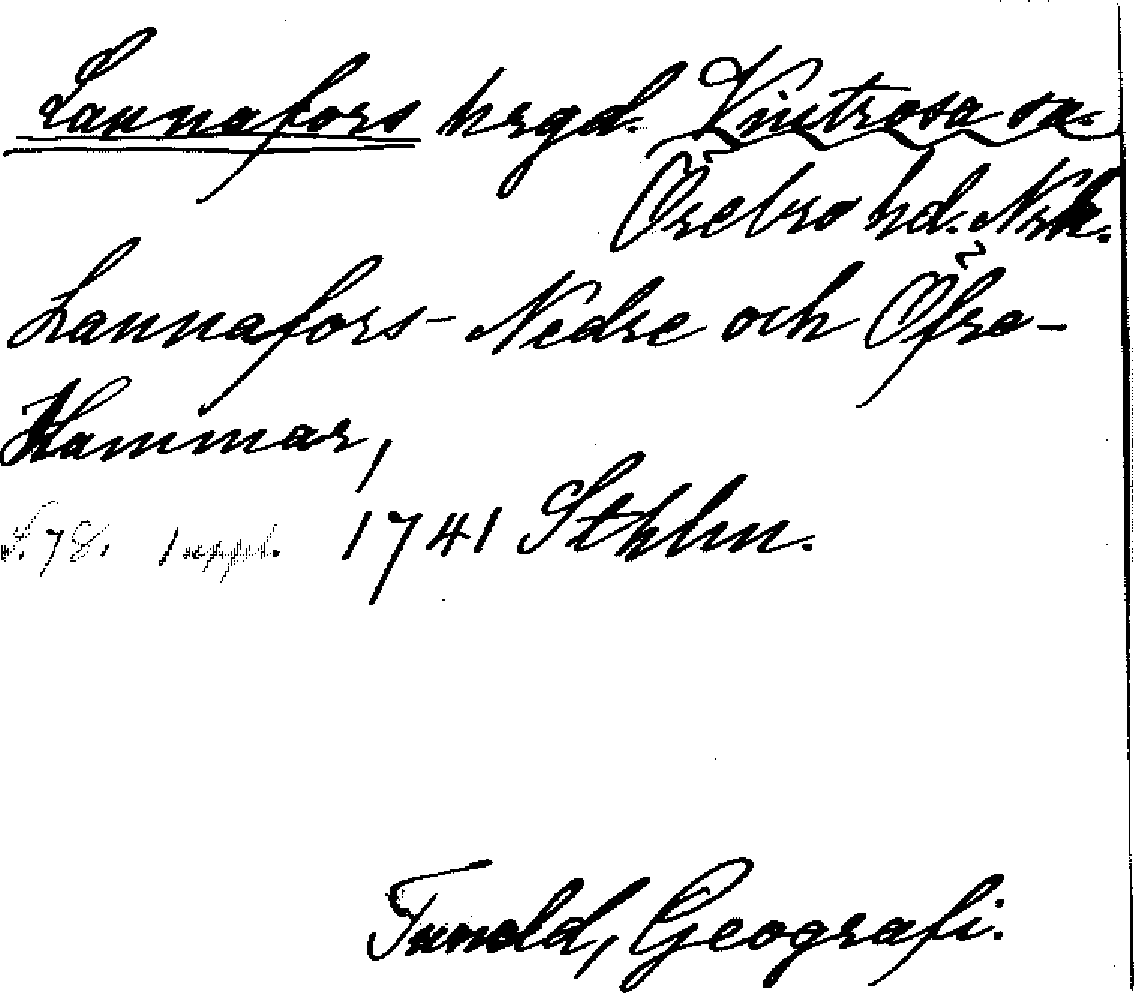 Lannafors hrgd. Vintrosa sn.
Örebro hd. Nrk.
Lannafors- Nedre och Öfre-
Hammar,
s. 78. 1 uppl. 1741 Sthlm.
Tunold, Geografi.